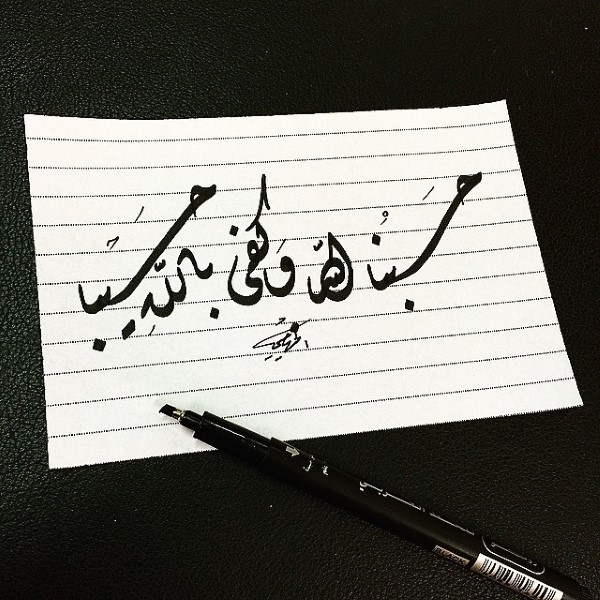 حَسبُنا اللّه وَكفى باللّهِ حَسيبا
BLACK